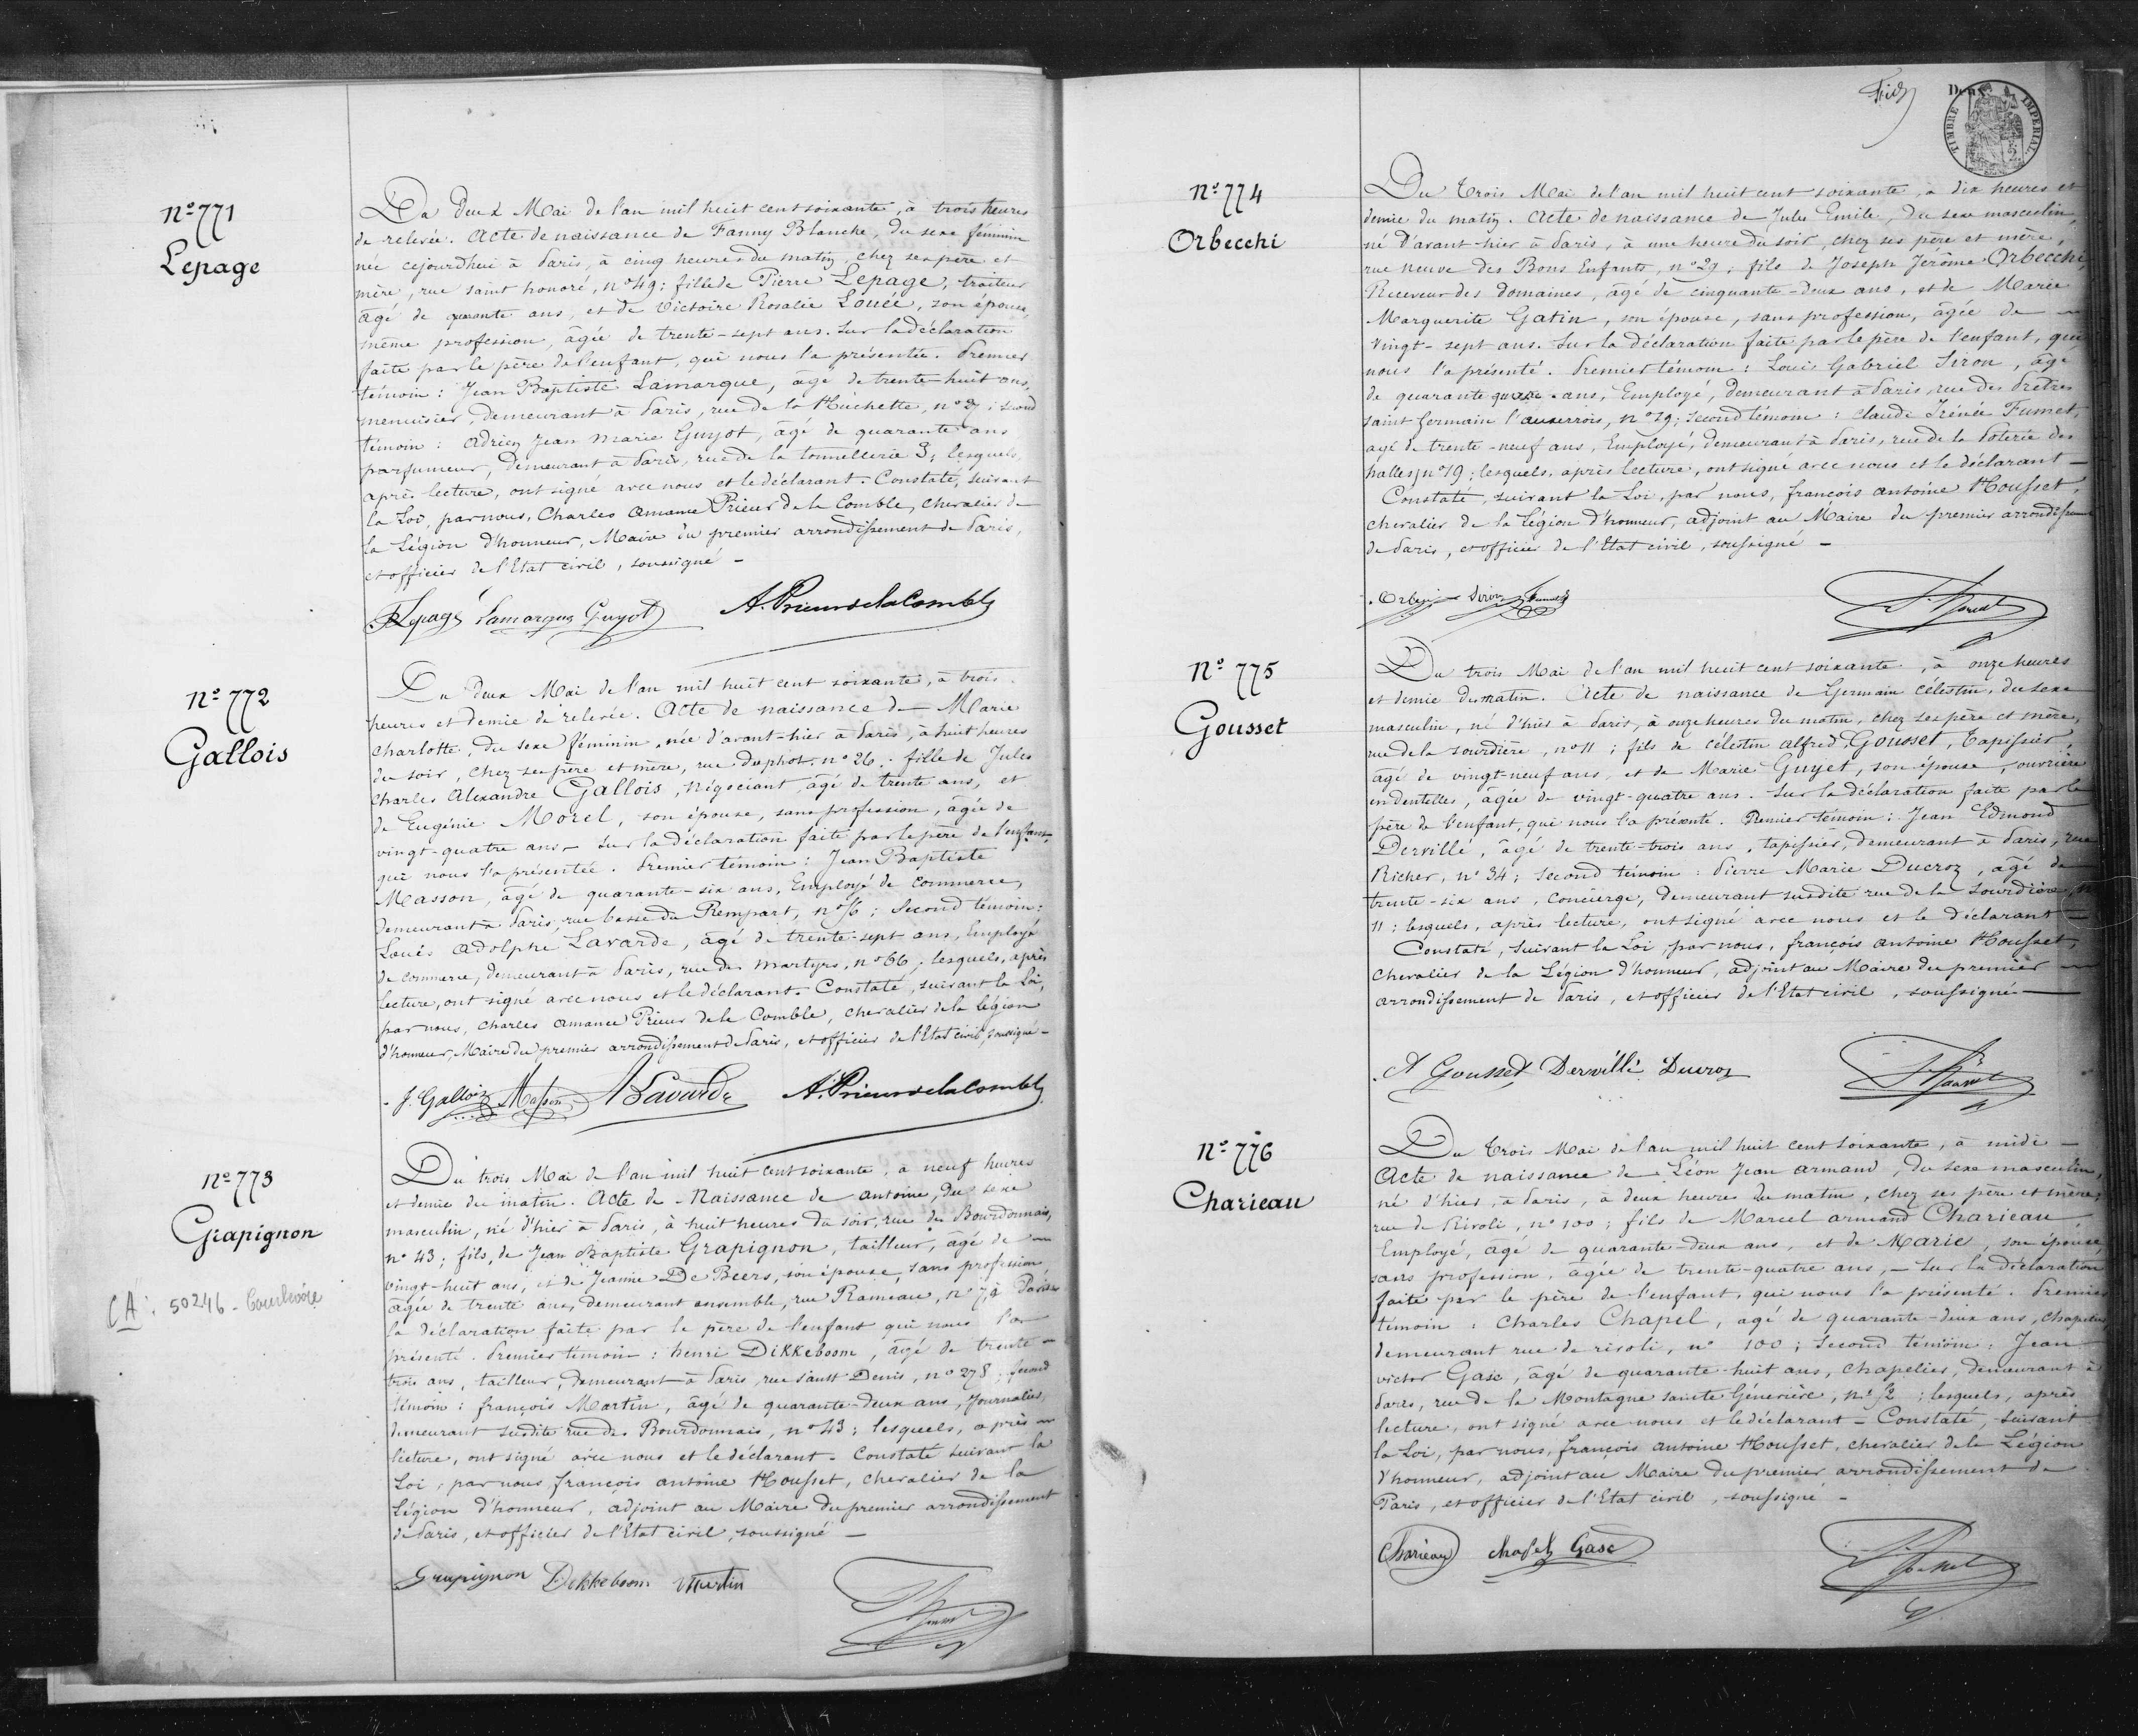 N° 771
Lepage
Du deux Mai de l'an mil huit cent soixante, à trois heures
de relevée. Acte de naissance de Fanny Blanche, du sexe féminin
née cejourd'hui à Paris, à cinq heures du matin, chez ses père et
mère, rue saint honoré, n° 49; fille de Pierre Lepage, traiteur
âgé de quarante ans, et de Victoire Rosalie Louée, son épouse,
même profession, âgée de trente-sept ans. Sur la déclaration
faite par le père de l'enfant, qui nous l'a présentée. Premier
témoin: Jean Baptiste Lamarque, âgé de trente-huit ans,
menuisier, demeurant à Paris, rue de la Huchette, n° 27; second
témoin: Adrien Jean Marie Guyot, âgé de quarante ans
parfumeur, demeurant à Paris, rue de la tonnellerie 3; lesquels,
après lecture, ont signé avec nous et le déclarant. Constaté, suivant
la Loi, par nous, Charles Amance Prieur de la Comble, chevalier de
la Légion d'honneur, Maire du premier arrondissement de Paris,
et officier de l'Etat civil, soussigné -
Lepage Lamarque Guyot A. Prieur de la Comble
N° 772
Gallois
Du deux Mai de l'an mil huit cent soixante, à trois
heures et demie de relevée. Acte de naissance de Marie
Charlotte, du sexe féminin, née d'avant-hier à Paris, à huit heures
du soir, chez ses père et mère, rue duphot, n° 26; fille de Jules
Charles Alexandre Gallois, négociant, âgé de trente ans, et
de Eugénie Morel, son épouse, sans profession, âgée de
vingt-quatre ans - Sur la déclaration faite par le père de l'enfant
qui nous l'a présentée. Premier témoin: Jean Baptiste
Masson, âgé de quarante-six ans, Employé de commerce,
demeurant à Paris, rue basse du Rempart, n° 56; Second témoin:
Louis Adolphe Lavarde, âgé de trente-sept ans, Employé
de commerce, demeurant à Paris, rue des martyrs, n° 66; lesquels, après
lecture, ont signé avec nous et le déclarant. Constaté, suivant la Loi,
par nous, Charles Amance Prieur de la Comble, chevalier de la légion
d'honneur, Maire du premier arrondissement de Paris, et officier de l'Etat civil, soussigné -
J. Gallois Masson Lavarde A. Prieur de la Comble
N° 773
Grapignon
CA: 50246 - Courbevoie
Du trois Mai de l'an mil huit cent soixante, à neuf heures
et demie du matin. Acte de Naissance de Antoine, du sexe
masculin, né d'hier à Paris, à huit heures du soir, rue des Bourdonnais,
n° 43; fils, de Jean Baptiste Grapignon, tailleur, âgé de
vingt-huit ans, et de Jeannie De Beers, son épouse, sans profession,
âgée de trente ans, demeurant ensemble, rue Rameau, n° 7, à Paris
la déclaration faite par le père de l'enfant qui nous l'a
présenté. Premier témoin: henri Dikkeboom, âgé de trente
trois ans, tailleur, demeurant à Paris, rue saint Denis, n° 278; second
témoin: françois Martin, âgé de quarante-deux ans, Journalier,
demeurant susdite rue des Bourdonnais, n° 43; lesquels, après
lecture, ont signé avec nous et le déclarant. Constaté suivant la
Loi, par nous, françois antoine Housset, chevalier de la
Légion d'honneur, adjoint au Maire du premier arrondissement
de Paris, et officier de l'Etat civil, soussigné -
Grapignon Dikkeboom Martin
Deux
TIMBRE IMPERIAL
N° 774
Orbecchi
Du trois Mai de l'an mil huit cent soixante, à dix heures et
demie du matin. Acte de naissance de Jules Emile, du sexe masculin,
né d'avant-hier à Paris, à une heure du soir, chez ses père et mère,
rue neuve des Bons Enfants, n° 29; fils de Joseph Jérôme Orbecchi,
Receveur des domaines, âgé de cinquante-deux ans, et de Marie
Marguerite Gatin, son épouse, sans profession, âgée de
vingt-sept ans. Sur la déclaration faite par le père de l'enfant, qui
nous l'a présenté. Premier témoin: Louis Gabriel Siron, âgé
de quarante ans, Employé, demeurant à Paris, rue des Prêtres
saint germain l'auxerrois, n° 19; second témoin: Claude Irénée Fumet,
âgé de trente-neuf ans, Employé, demeurant à Paris, rue de la Poterie des
halles, n° 19; lesquels, après lecture, ont signé avec nous et le déclarant -
Constaté, suivant la Loi, par nous, françois antoine Housset,
chevalier de la Légion d'honneur, adjoint au Maire du premier arrondissement
de Paris, et officier de l'Etat civil, soussigné -
Orbecchi Siron Fumet
N° 775
Gousset
Du trois Mai de l'an mil huit cent soixante, à onze heures
et demie du matin. Acte de naissance de Germain Célestin, du sexe
masculin, né d'hier à Paris, à onze heures du matin, chez ses père et mère,
rue de la sourdière, n° 11; fils de Célestin Alfred Gousset, Tapissier,
âgé de vingt-neuf ans, et de Marie Guyet, son épouse, ouvrière
en dentelles, âgée de vingt-quatre ans. Sur la déclaration faite par le
père de l'enfant, qui nous l'a présenté. Premier témoin: Jean Edmond
Dervillé, âgé de trente-trois ans, tapissier, demeurant à Paris, rue
Richer, n° 34; Second témoin: Pierre Marie Ducroz, âgé de
trente-six ans, concierge, demeurant susdite rue de la sourdière, n°
11; lesquels, après lecture, ont signé avec nous et le déclarant -
Constaté, suivant la Loi, par nous, françois antoine Housset,
chevalier de la Légion d'honneur, adjoint au Maire du premier
arrondissement de Paris, et officier de l'Etat civil, soussigné -
A Gousset Dervillé Ducroz
N° 776
Charieau
Du trois Mai de l'an mil huit cent soixante, à midi -
Acte de naissance de Léon Jean armand, du sexe masculin,
né d'hier, à Paris, à deux heures du matin, chez ses père et mère,
rue de Rivoli, n° 100; fils de Marcel armand Charieau,
Employé, âgé de quarante-deux ans, et de Marie, son épouse,
sans profession, âgée de trente-quatre ans, - Sur la déclaration
faite par le père de l'enfant, qui nous l'a présenté. Premier
témoin: Charles Chapel, âgé de quarante-deux ans, chapelier,
demeurant rue de rivoli, n° 100; Second témoin: Jean
victor Gasc, âgé de quarante-huit ans, Chapelier, demeurant à
Paris, rue de la Montagne sainte Géneviève, n° 52; lesquels, après
lecture, ont signé avec nous et le déclarant - Constaté, suivant
la Loi, par nous, françois antoine Housset, chevalier de la Légion
d'honneur, adjoint au Maire du premier arrondissement de
Paris, et officier de l'Etat civil, soussigné -
Charieau chapel Gasc